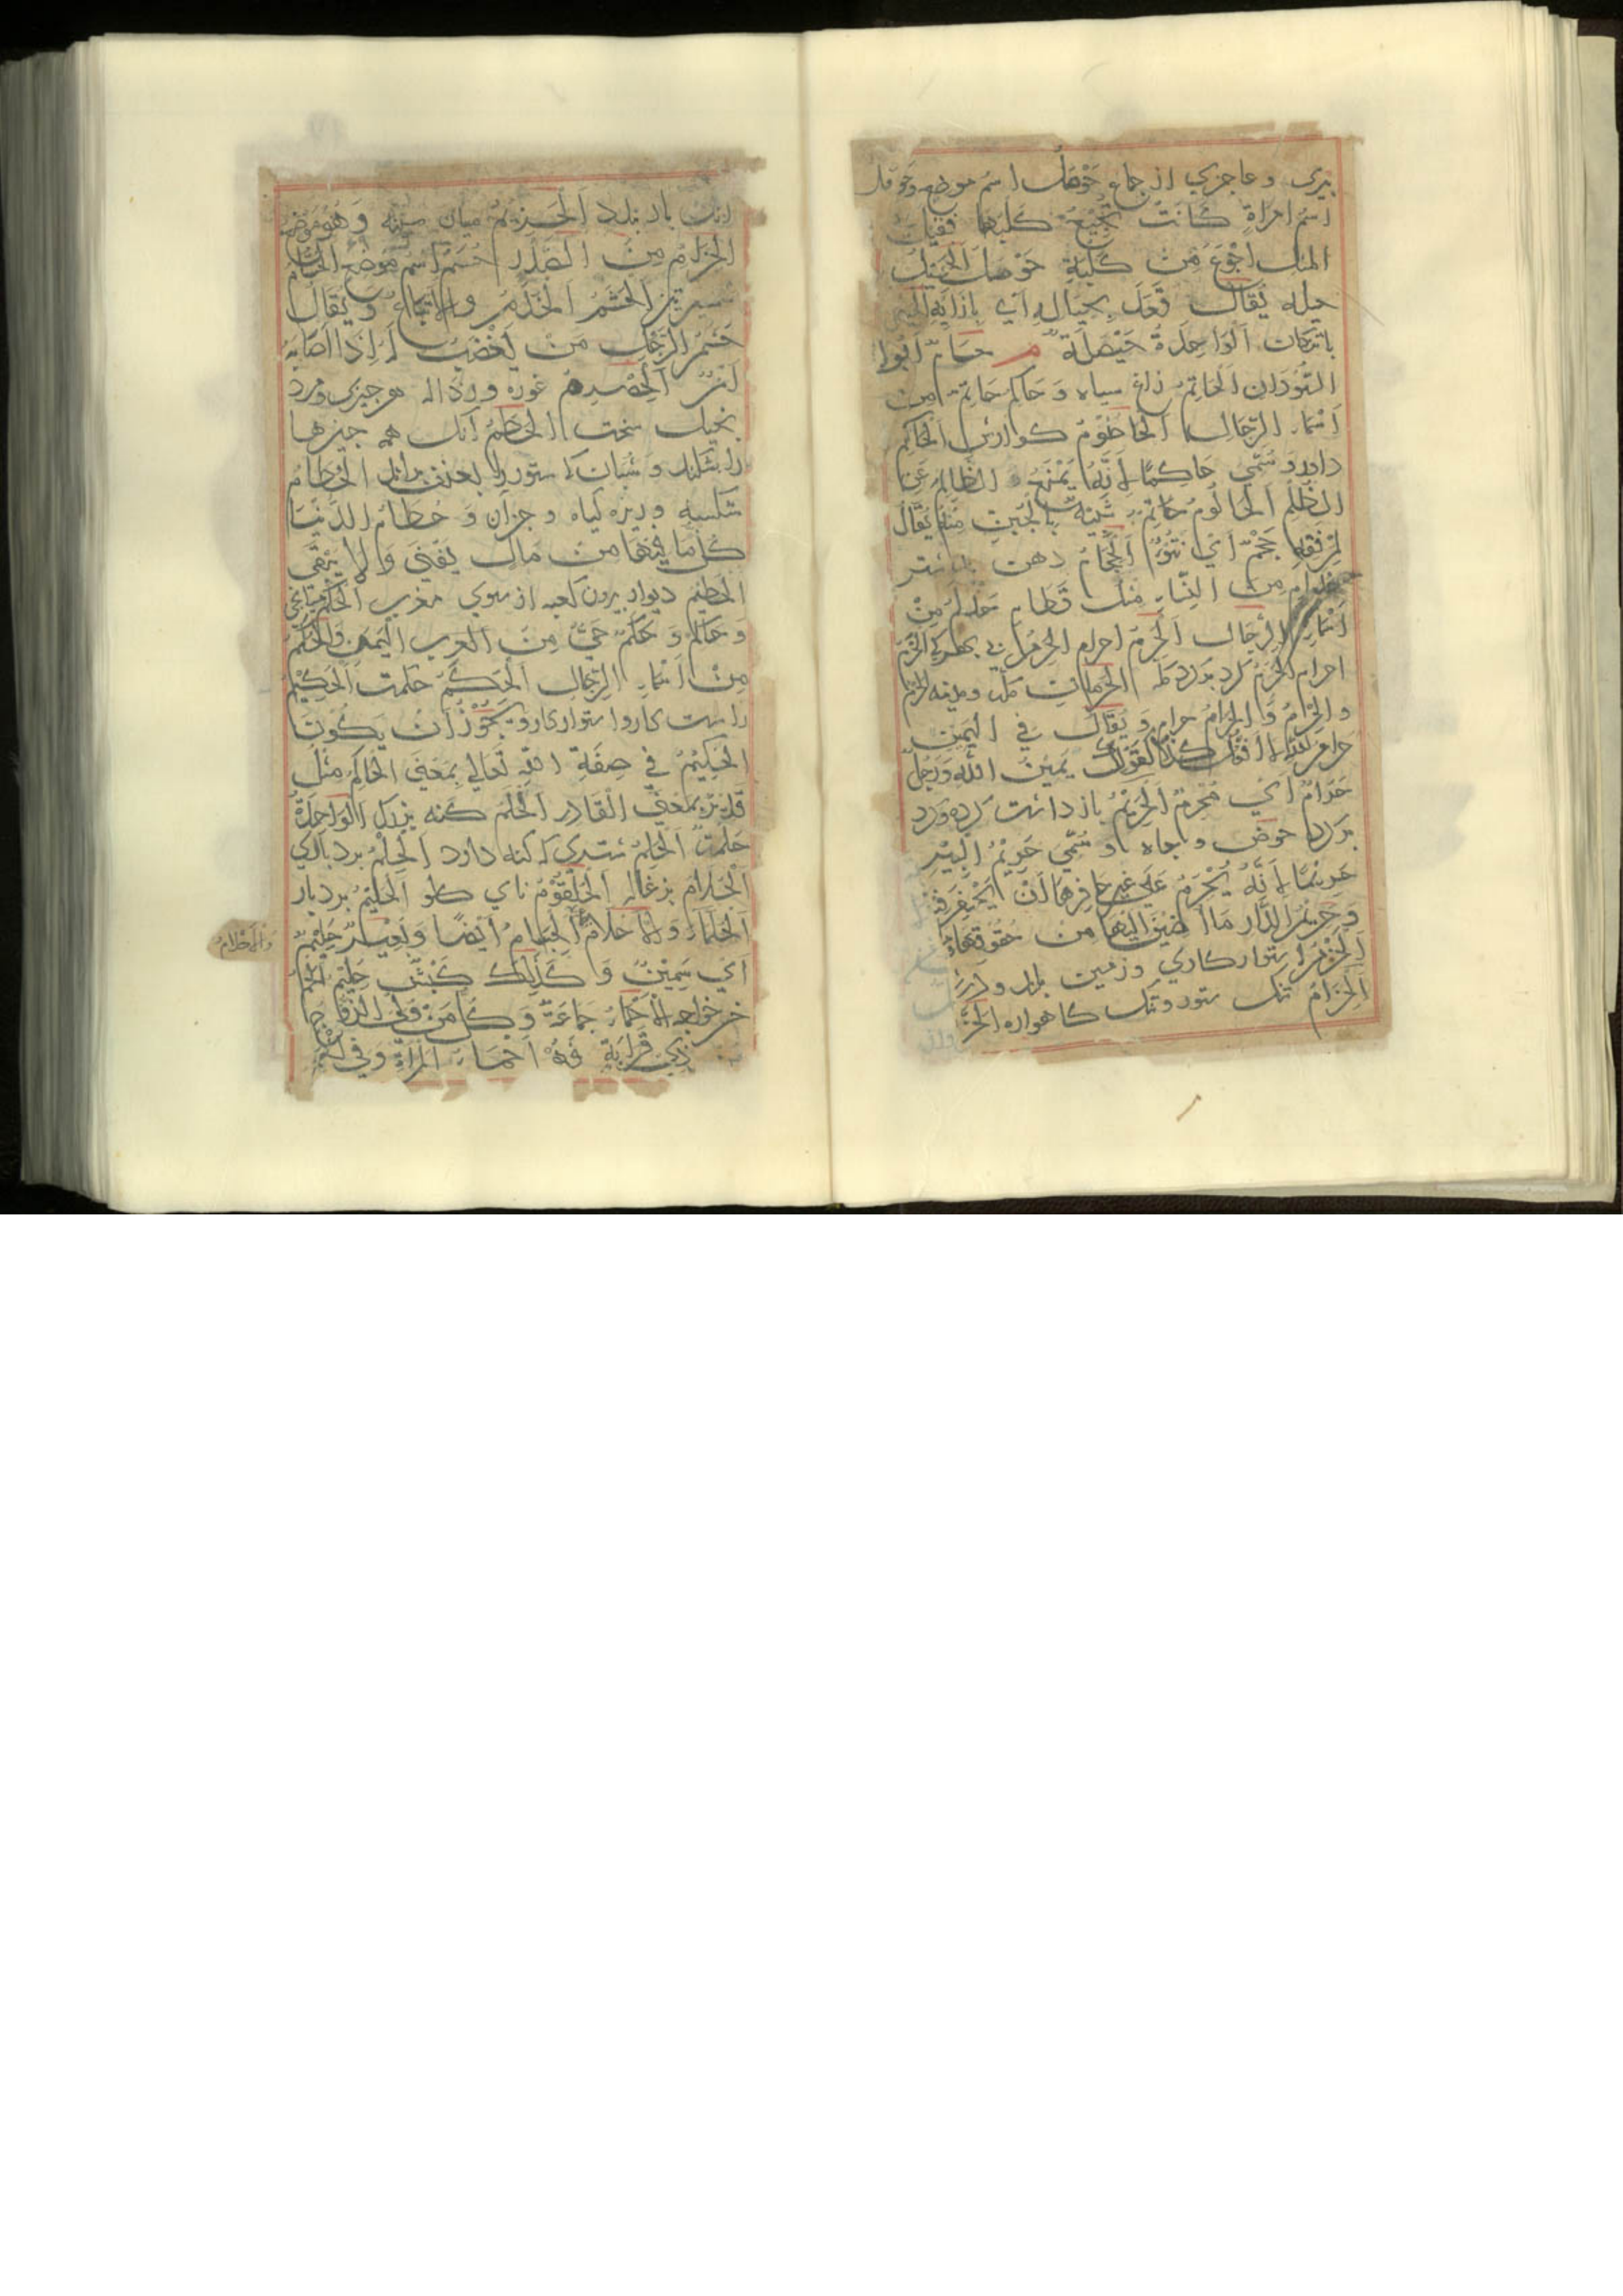 بیری و عاجزی از جماع حَوْصَلُ اسم موضع وحومل
اسم امراةٍ كَانَتْ تُجِيْعُ كلبَها فقيل
المثل اجْوَعُ مِنْ كَلْبَةِ حَوْمَلَ اَلْحِيَلُ
حیله يُقَالُ قَعَدَ بِحِيَالِهِ اَيْ بِاِزَائِهِ
باتنكان اَلْوَاحِدَةُ حَيْصَلَةٌ م حام ابوا
السُّوْدَان اَلْحَاتِمُ زاغ سیاه وَ حَاكِمٌ حَاتِمٌ من
اَسْمَاءِ الرِّجَالِ اَلْحَاطُوْمُ كوارش اَلْحَاكِمُ
داور وَ سُمِّيَ حَاكِمًا لِاَنَّهُ يَمْنَعُ الظَّالِمَ عَنِ
الظُّلْمِ اَلْحَالُوْمُ شَبِيْهٌ بِالْجُبْنِ يُقَالُ
لِمِرْفَقِهِ حَجْمٌ اَيْ نُتُوْءٌ اَلْحِجَامُ دهن بند شتر
حذام مِن النِّسَاءِ مثل قَطَامِ حذلم مِنْ
اَسْمَاءِ الرِّجَالِ اَلْحُرْمُ احرام
احرام الحَرَمُ كرد بر كرد مكه الحَرَمَانِ مكه ومدینه
والحَرَامُ حرام وَ يُقَالُ فِي الْيَمِيْنِ
حرام الله لا افعل كذا كقولك يَمِيْنَ اللهِ وَ رَجُلٌ
حَرَامٌ اَيْ مُحْرِمٌ اَلْحَرِيْمُ باز داشت كرده وكرد
بر كرد حوض و چاه و سُمِّيَ حَرِيْمُ الْبِئْرِ
حَرِيْمًا لِاَنَّهُ يَحْرُمُ عَلَي غَيْرِ حَافِرِهَا اَنْ يَحْتَفِرَ فيه
وَ حَرِيْمُ الدَّارِ مَا اُضِيْفَ اِلَيْهَا مِنْ حُقُوْقِهَا
اَلْحَزْمُ استوار كاري وزمین بلند ودرشت
اَلْحِزَامُ تنگ ستور وتنگ كاهواره
انك بار بندد اَلْحَيْزُوْمُ میان سینه وَ هُوَ مَوْضِعُ
الحِزَامِ مِنَ الصَّدْرِ حُسَمُ اسم مَوْضِعٍ الحُسَامُ
شمشیر تیز اَلْحَشَمُ اَلْخَدَمُ وَ الْاَتْبَاعُ وَ يُقَالُ
حَشَمُ الرَّجُلِ مَنْ يَغْضَبُ لَهُ اِذَا اَصَابَهُ
اَمْرٌ اَلْحِصْرِمُ غوره و رذاله هر چیزی ومرد
بخیل سخت الحُطَمُ آنك همه چیزها
را بشكند وَ شبان كه ستور را بعنف راند الحُطَامُ
شكسته و ریزه گیاه و جز آن وَ حُطَامُ الدُّنْيَا
كُلُّ مَا فِيْهَا مِنْ مَالٍ يَفْنَي وَ لَا يَبْقَي
الحَطِيْمُ دیوار برون كعبه از سوي مغرب الحَكَمُ
وَ حَاكَمٌ وَ حَكَمٌ حَيٌّ مِنَ الْعَرَبِ الْيَمَنِ وَالْحَكَمُ
مِنْ اَسْمَاءِ الرِّجَالِ اَلْحِكَمُ حكمت اَلْحَكِيْمُ
راست كار و استوار كار وَ يَجُوْزُ اَنْ يَكُوْنَ
الْحَكِيْمُ فِي صِفَةِ اللهِ تَعَالَي بِمَعْنَي الْحَاكِمِ مثل
قدير بِمَعْنَي الْقَادِرِ اَلْحَلَمُ كنه بزرگ اَلْوَاحِدَةُ
حَلَمَةٌ اَلْحَلِمُ شتری كه كنه دارد اَلْحِلْمُ بردباري
اَلْحُلَّامُ بزغاله اَلْحُلْقُوْمُ ناي گلو اَلْحَلِيْمُ بردبار
اَلْحُلَمَاءُ وَ الْاَحْلَامُ اَلْجِسَامُ اَيْضًا وَ بَعِيْرٌ حَلِيْمٌ
والاحلام
اَيْ سَمِيْنٌ وَ كَذٰلِكَ كَبْشٌ حَلِيْمٌ اَلْحَمُ
خسر خواجه الاَحْمَاءُ جَمَاعَةٌ وَ كُلُّ مَنْ وَلِيَ الزَّوْجَ
ذِيْ قَرَابَةٍ فَهُوَ اَحْمَاءُ الْمَرْأَةِ وَ فِي